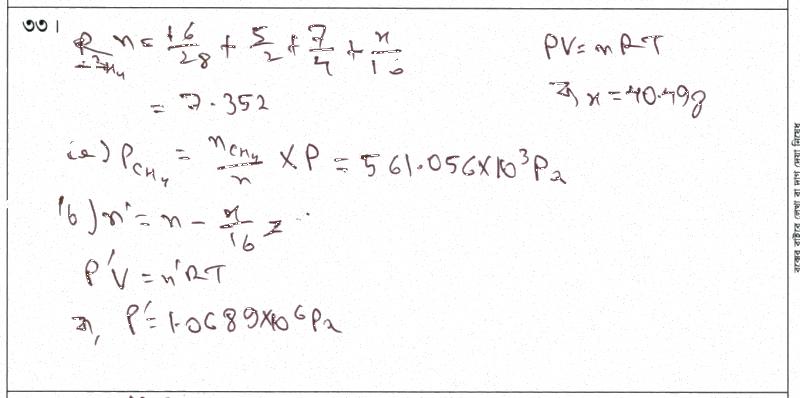 ৩৩।
n = 16/28 + 5/2 + 7/4 + x/16
PV = nRT
= 7.352
বা, x = 40.49g
(a) P_CH₄ = n_CH₄/n × P = 561.056×10³ Pa
(b) n' = n - x/16 =
P'V = n'RT
বা, P' = 1.0689×10⁶ Pa
বক্সের বাইরে লেখা বা দাগ দেয়া নিষেধ